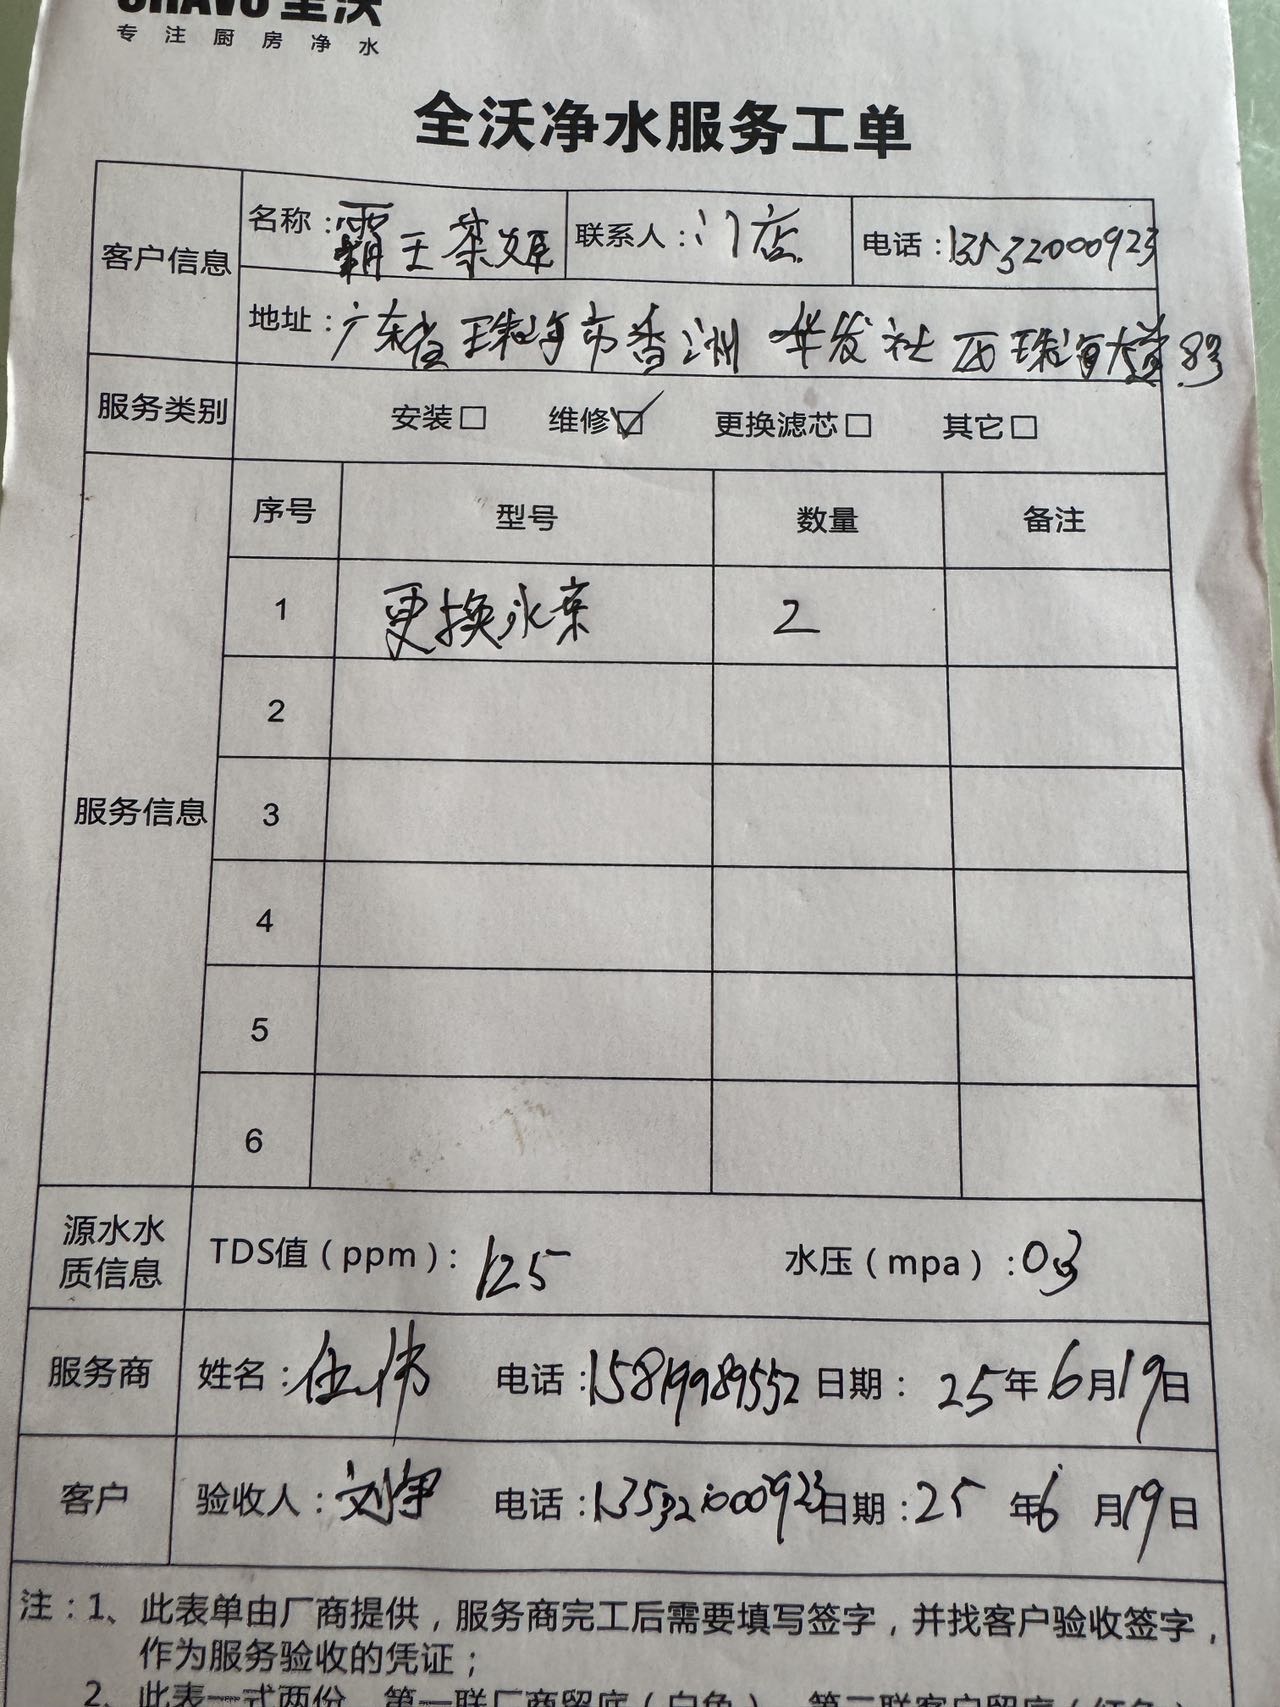 全沃
专注厨房净水
全沃净水服务工单
客户信息 名称：霸王茶姬 联系人：门店 电话：13532000923
地址：广东省珠海市香洲 华发社 西珠海大道8号
服务类别 安装□ 维修☑ 更换滤芯□ 其它□
服务信息 序号 型号 数量 备注
1 更换水泵 2
2
3
4
5
6
源水水质信息 TDS值（ppm）：125 水压（mpa）：03
服务商 姓名：伍伟 电话：15819989552 日期：25年6月19日
客户 验收人：刘 电话：13532000923 日期：25年6月19日
注：1、此表单由厂商提供，服务商完工后需要填写签字，并找客户验收签字，
作为服务验收的凭证；
2、此表一式两份，第一联厂商留底（白色），第二联客户留底（红色